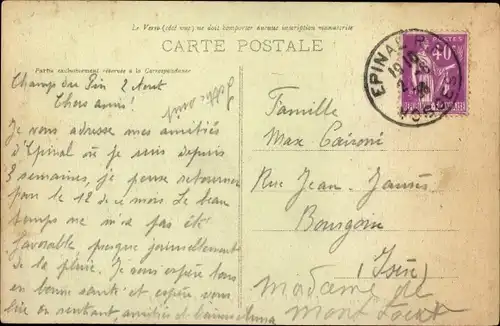 Le Verso (côté vue) ne doit comporter aucune inscription manuscrite
CARTE POSTALE
Partie exclusivement réservée à la Correspondance
Champ du Pin 2 Aout
Chers amis!
Je vous adresse mes amitiés
d'Epinal où je suis depuis
3 semaines, je pense retourner
pour le 12 de ce mois. Le beau
temps ne m'a pas été
favorable presque journellement
de la pluie. Je vous espère tous
en bonne santé et espère vous
lire en rentrant, amitiés et
Famille
Max Caironi
Rue Jean-Jaurès
Bourgoin
(Isère)
Madame de
Mont
EPINAL
POSTES
40